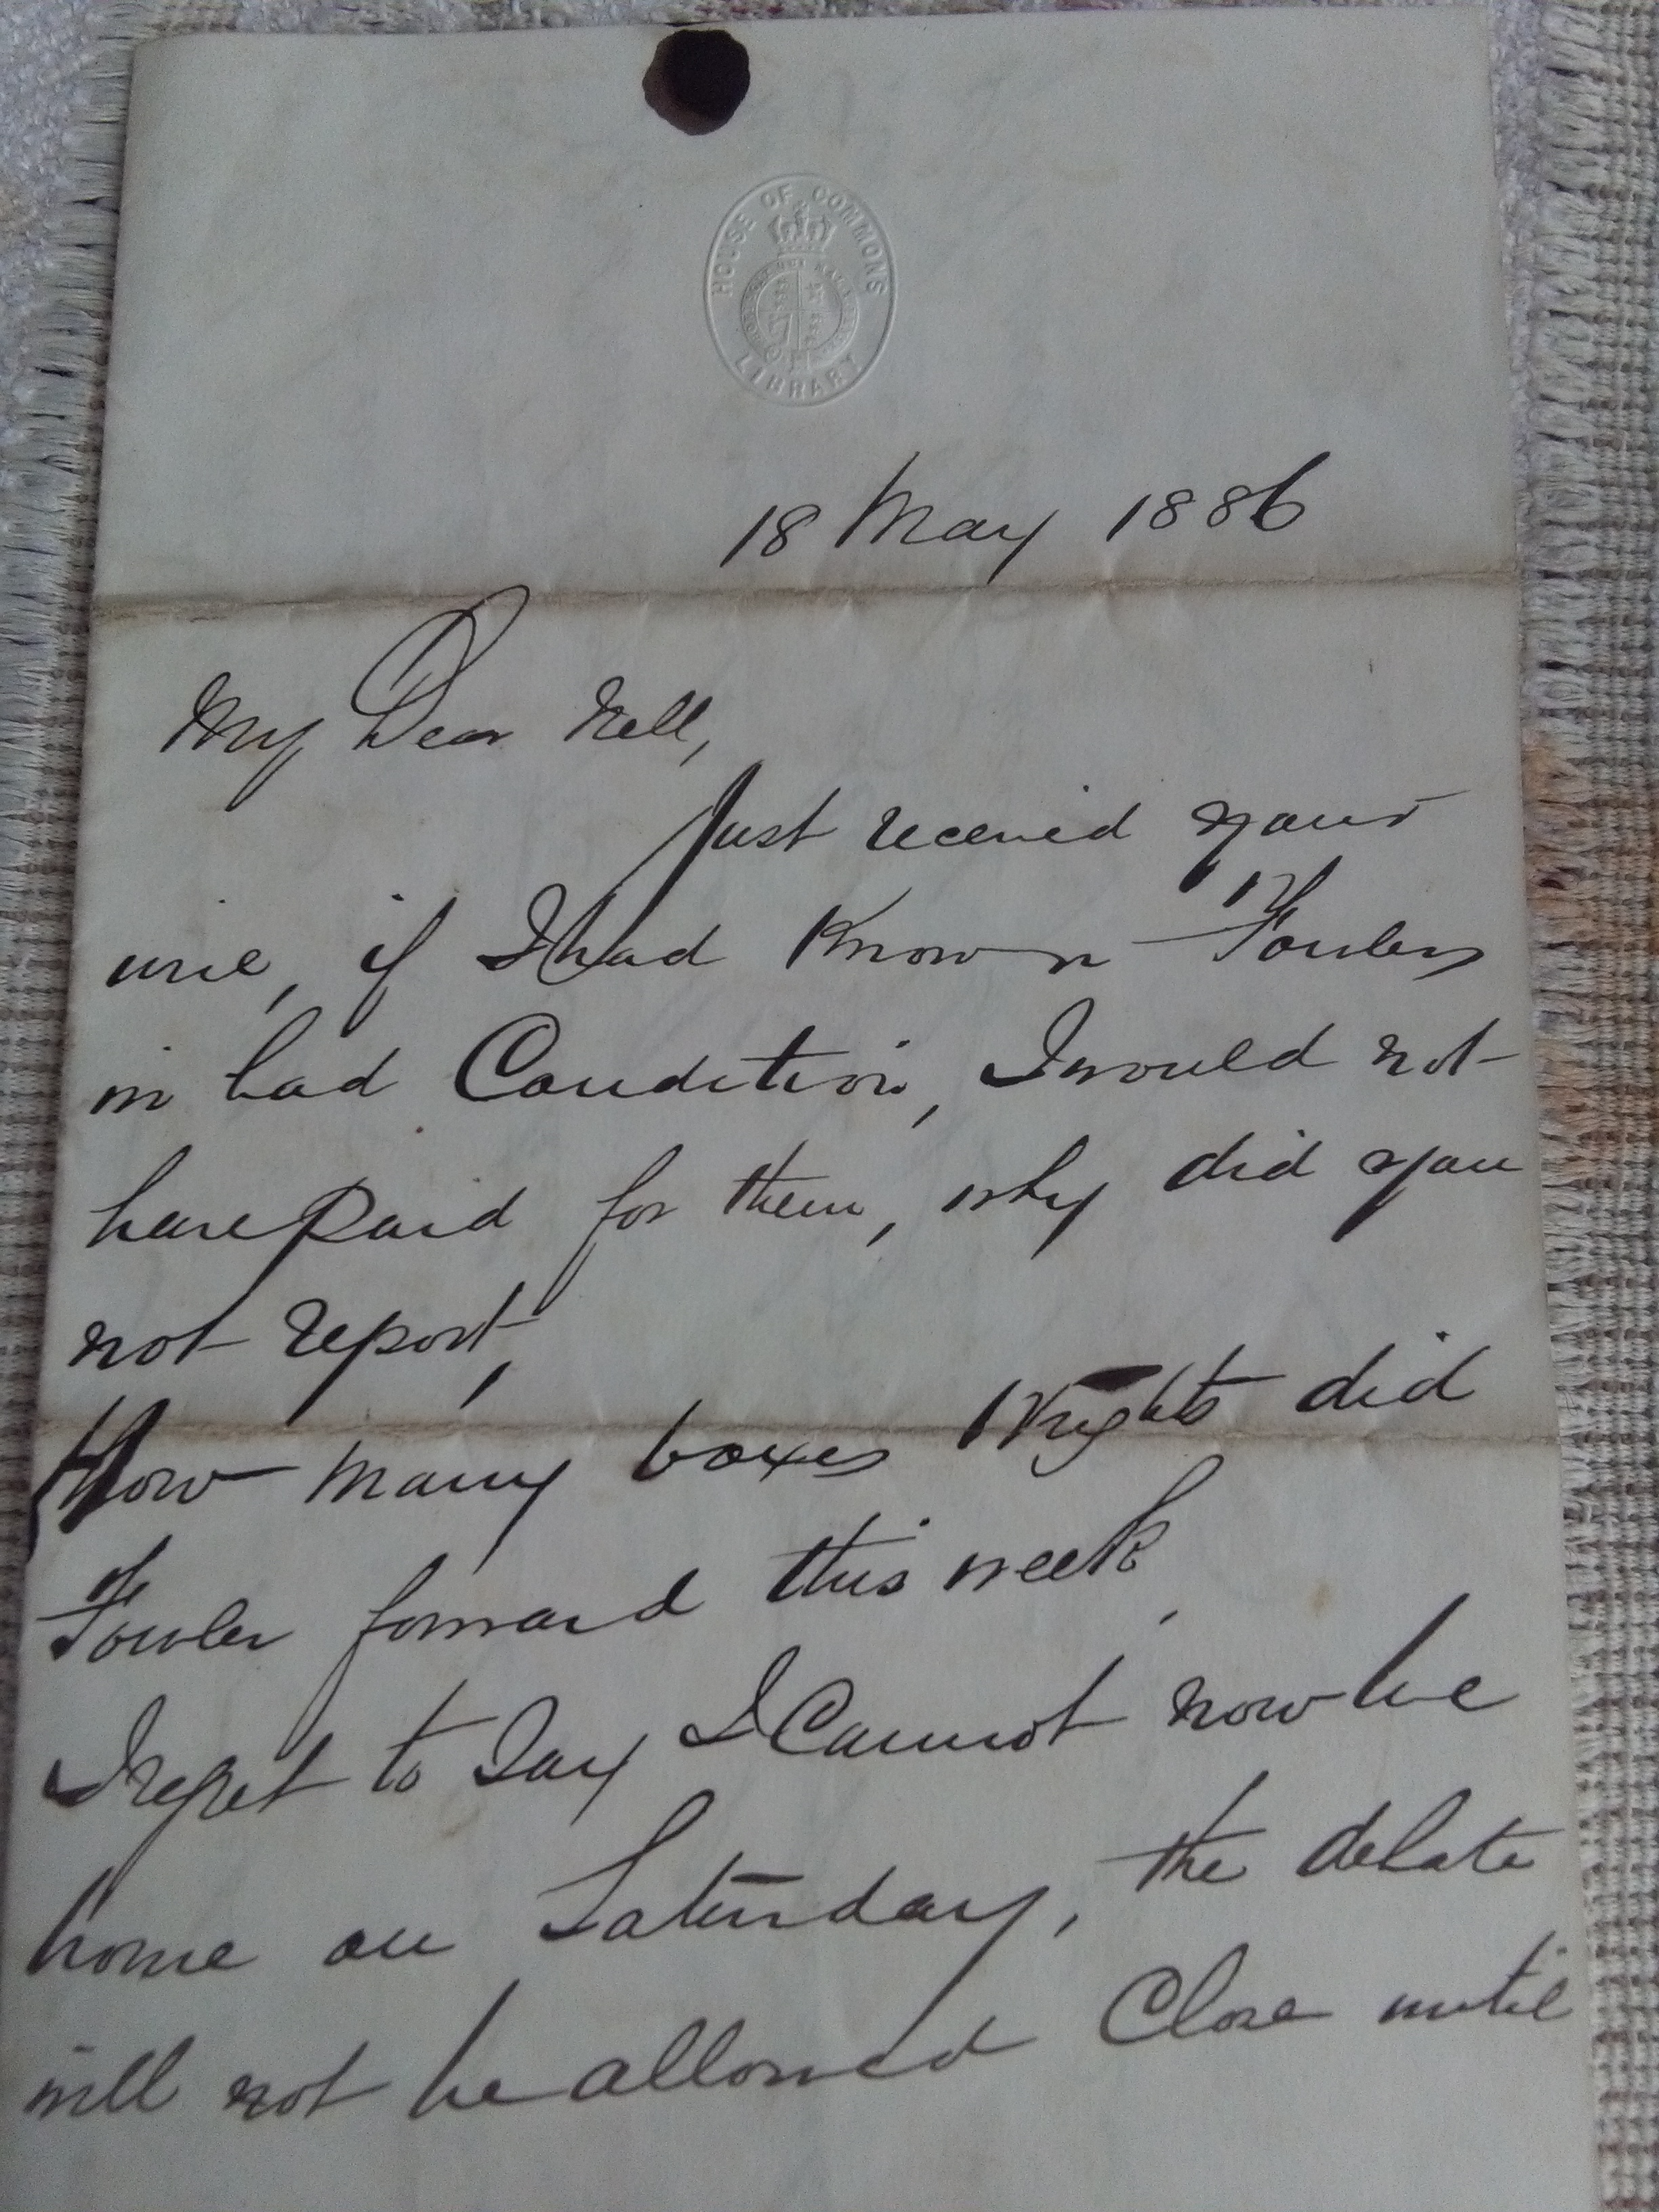 HOUSE OF COMMONS
LIBRARY
18 May 1886
My Dear Nell,
Just received your
wire, if I had Known Fowlers
in bad Condition, I would not
have Paid for them, why did you
not report,
How many boxes Wrights did
Fowler forward this week,
I regret to Say I Cannot now be
home on Saturday, the debate
will not be allowed Close until